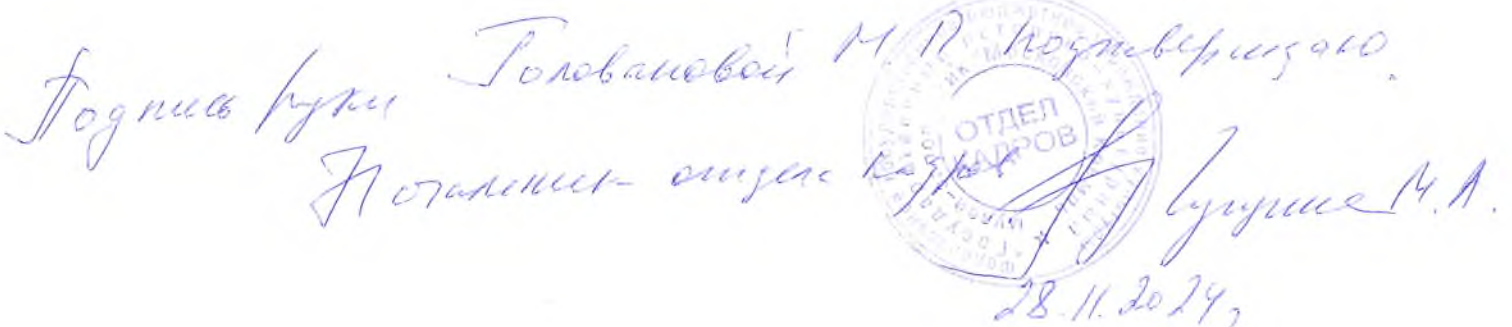 Подпись руки Головановой М П подтверждаю.
Начальник отдела кадров М.А.
ОТДЕЛ
КАДРОВ
28.11.2024г